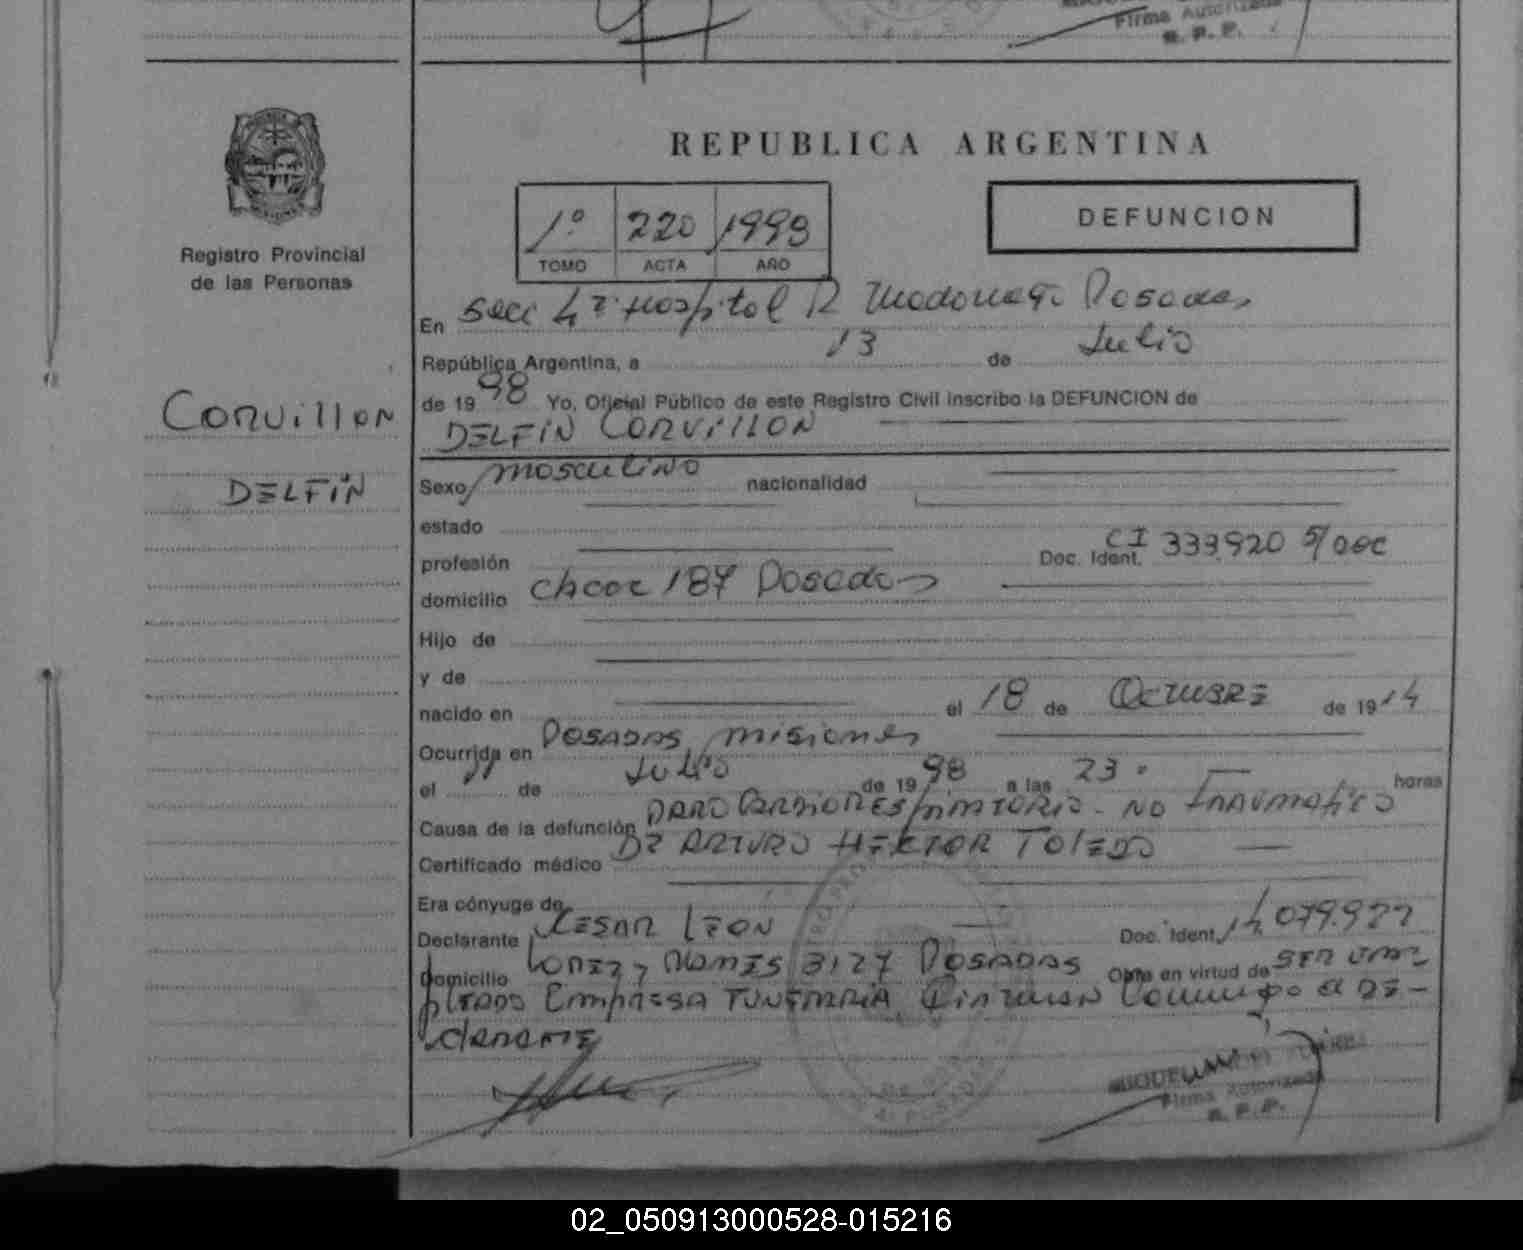 Firma Autorizada
R. P. P.
Registro Provincial
de las Personas
CORVILLON
DELFIN
REPUBLICA ARGENTINA
1º 220 1998
TOMO ACTA AÑO
DEFUNCION
En Secc 4ª Hospital R Madariaga Posadas
República Argentina, a 13 de Julio
de 1998 Yo, Oficial Público de este Registro Civil inscribo la DEFUNCION de
DELFIN CORVILLON
Sexo masculino nacionalidad
estado
profesión Doc. Ident. CI 333920
domicilio chacra 187 Posadas
Hijo de
y de
nacido en el 18 de OCTUBRE de 1914
Ocurrida en POSADAS, misiones
el 11 de Julio de 1998 a las 23. horas
Causa de la defunción PARO CARDIORESPIRATORIO - NO TRAUMATICO
Certificado médico Dr ARTURO HECTOR TOLEDO
Era cónyuge de
Declarante CESAR LEON Doc. Ident. 14.079.977
Domicilio LOPEZ y PLANES 3127 POSADAS Obra en virtud de SER EM
PLEADO EMPRESA FUNERARIA el DE-
CLARANTE
Firma Autorizada
R. P. P.
02_050913000528-015216